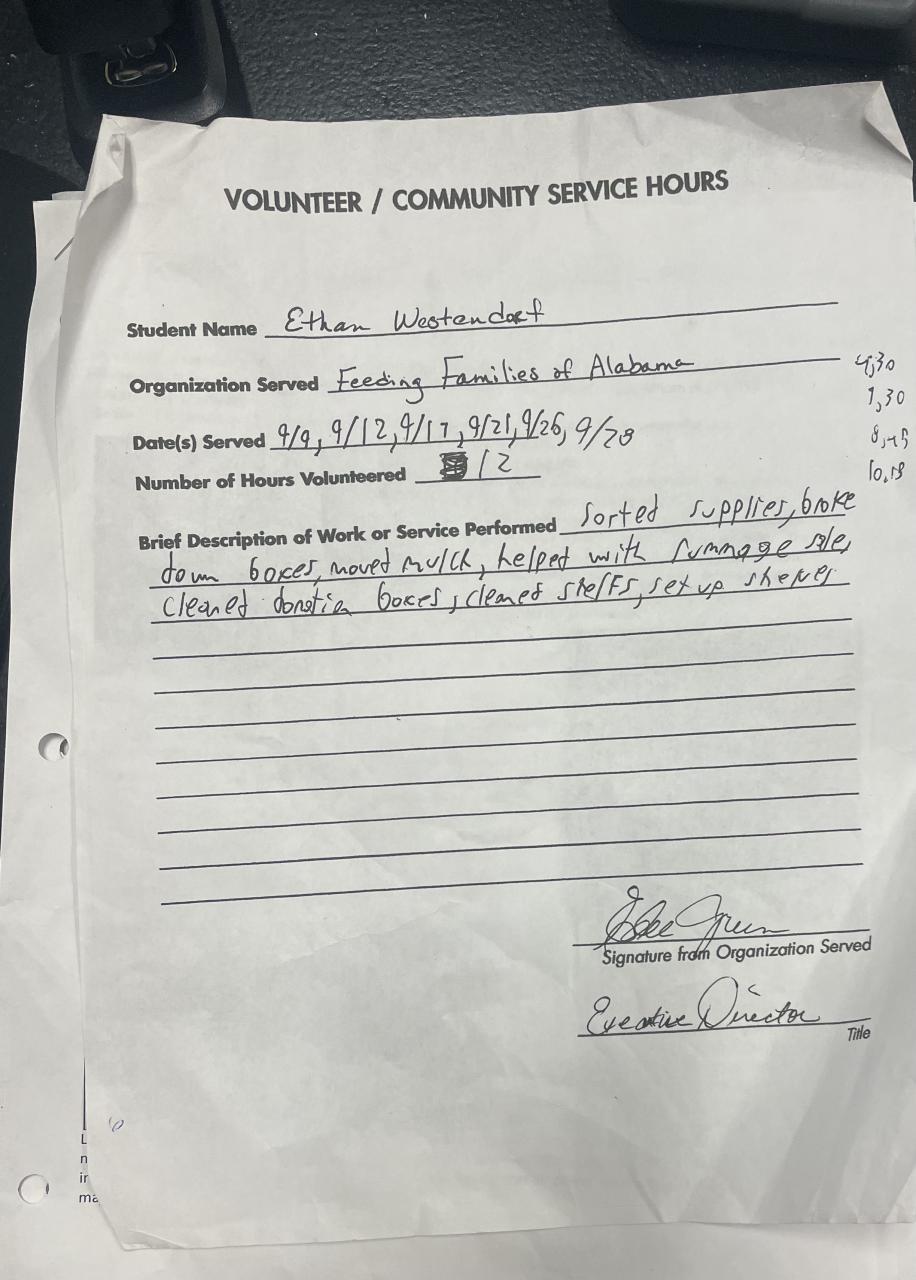 VOLUNTEER / COMMUNITY SERVICE HOURS
Student Name Ethan Westendorf
Organization Served Feeding Families of Alabama
4,30
Date(s) Served 9/9, 9/12, 9/17, 9/21, 9/26, 9/28
Number of Hours Volunteered 12
Brief Description of Work or Service Performed Sorted supplies, broke
down boxes, moved mulch, helped with rummage sale,
cleaned donation boxes, cleaned shelfs, set up shelves
Green
Signature from Organization Served
Executive Director
Title
L
n
ir
ma